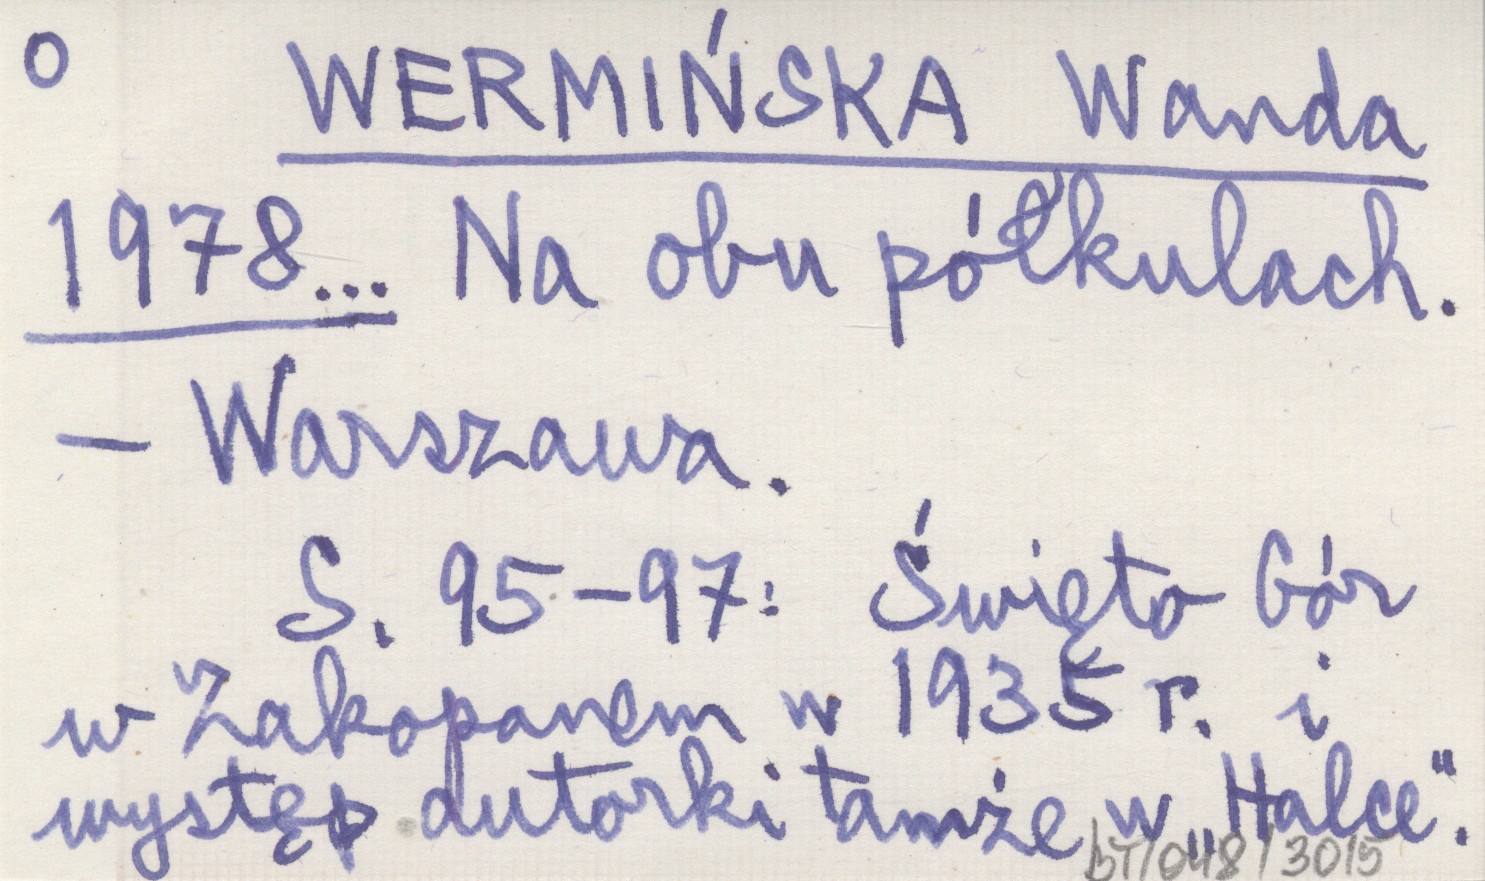 O WERMIŃSKA Wanda
1978... Na obu półkulach.
— Warszawa.
S. 95-97: Święto Gór
w Zakopanem w 1935 r. i
występ autorki tamże w „Halce".
BT/048/3015